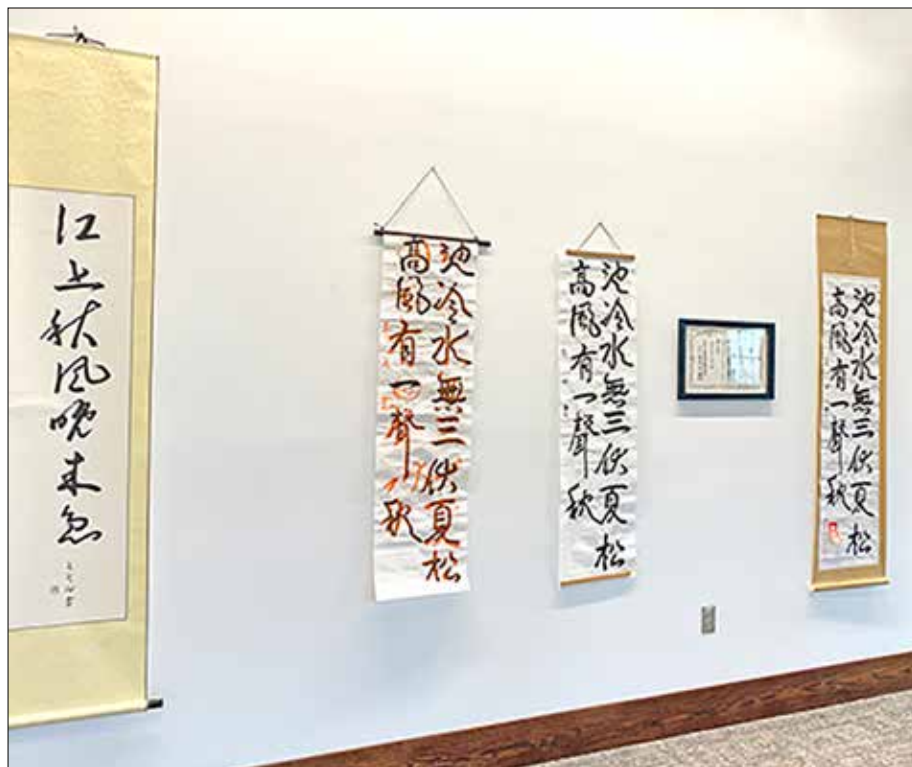 江上秋風晩来急
池冷水無三伏夏松
高風有一聲秋
池冷水無三伏夏松
高風有一聲秋
池冷水無三伏夏松
高風有一聲秋